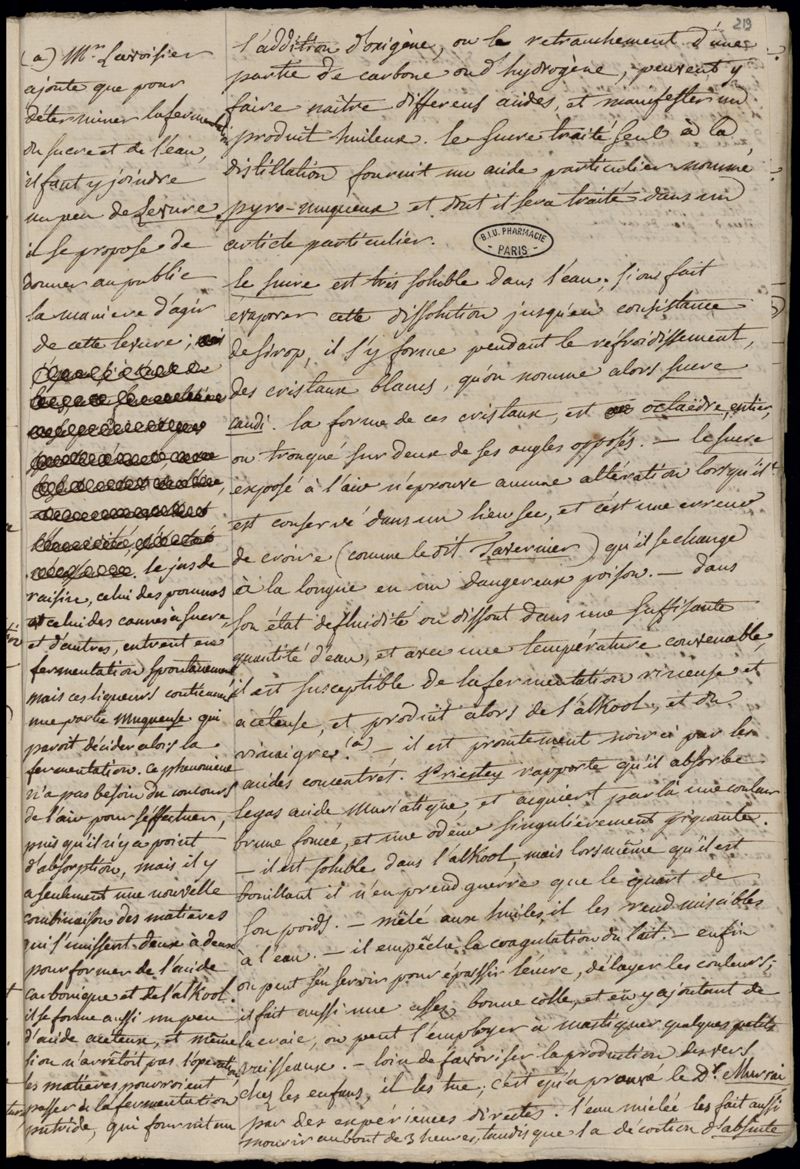 219
l'addition d'oxigène, ou le retranchement d'une
partie de carbone ou d'hydrogène, peuvent y
faire naître differens acides, et manifester un
produit huileux. le sucre traité seul à la
distillation fournit un acide particulier nommé
pyro-muqueux et dont il sera traité dans un
article particulier.
B.I.U. PHARMACIE
PARIS
le sucre est très soluble dans l'eau. si on fait
évaporer cette dissolution jusqu'en consistance
de sirop, il s'y forme pendant le refroidissement,
des cristaux blancs, qu'on nomme alors sucre
candi. la forme de ces cristaux, est octaëdre, entier,
ou tronqué sur deux de ses angles opposés. — le sucre
exposé à l'air n'éprouve aucune altération lorsqu'il
est conservé dans un lieu sec, et c'est une erreur
de croire (comme le dit Tavernier) qu'il se change
à la longue en un dangereux poison. — dans
son état de fluidité ou dissout dans une suffisante
quantité d'eau, et avec une température convenable,
il est susceptible de la fermentation vineuse et
aceteuse, et produit alors de l'alkool, et du
vinaigre (a). — il est promtement noirci par les
acides concentrés. Priestley rapporte qu'il absorbe
le gas acide muriatique, et acquiert par là une couleur
brune foncée, et une odeur singulièrement piquante.
— il est soluble dans l'alkool, mais lors même qu'il est
bouillant il n'en prend guerre que le quart de
son poids. — mêlé aux huiles, il les rend miscibles
à l'eau. — il empêche la coagulation du lait. — enfin
on peut s'en servir pour épaissir l'encre, délayer les couleurs;
il fait aussi une assez bonne colle, et en y ajoutant de
la craie, on peut l'employer à mastiquer quelques petits
vaisseaux. — loin de favoriser la production des vers
chez les enfans, il les tue; c'est qu'a prouvé le Dr. Murrai
par des expériences directes. l'eau miélée les fait aussi
mourir au bout de 3 heures, tandis que la décoction d'absinte
(a) Mr. Lavoisier
ajoute que pour
déterminer la fermentation
du sucre et de l'eau,
il faut y joindre
un peu de Levure.
il se propose de
donner au public
la maniere d'agir
de cette levure;
le jus de
raisin, celui des pommes
et celui des cannes à sucre
et d'autres, entrent en
fermentation spontanement
mais ces liqueurs contiennent
une partie muqueuse qui
paroit décider alors la
fermentation. Ce phenomène
n'a pas besoin du concours
de l'air pour s'effectuer,
puisqu'il n'y a point
d'absorption, mais il y
a seulement une nouvelle
combinaison des matières
qui s'unissent deux à deux
pour former de l'acide
carbonique et de l'alkool.
il se forme aussi un peu
d'acide aceteux, et même
si on n'arrêtoit pas l'operation,
les matières pourroient
passer de la fermentation
putride, qui fournit un